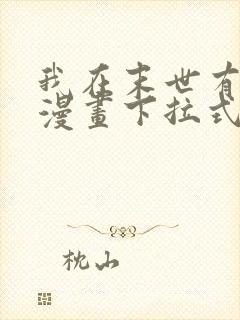 我在末世有
漫畫下拉式
枕山